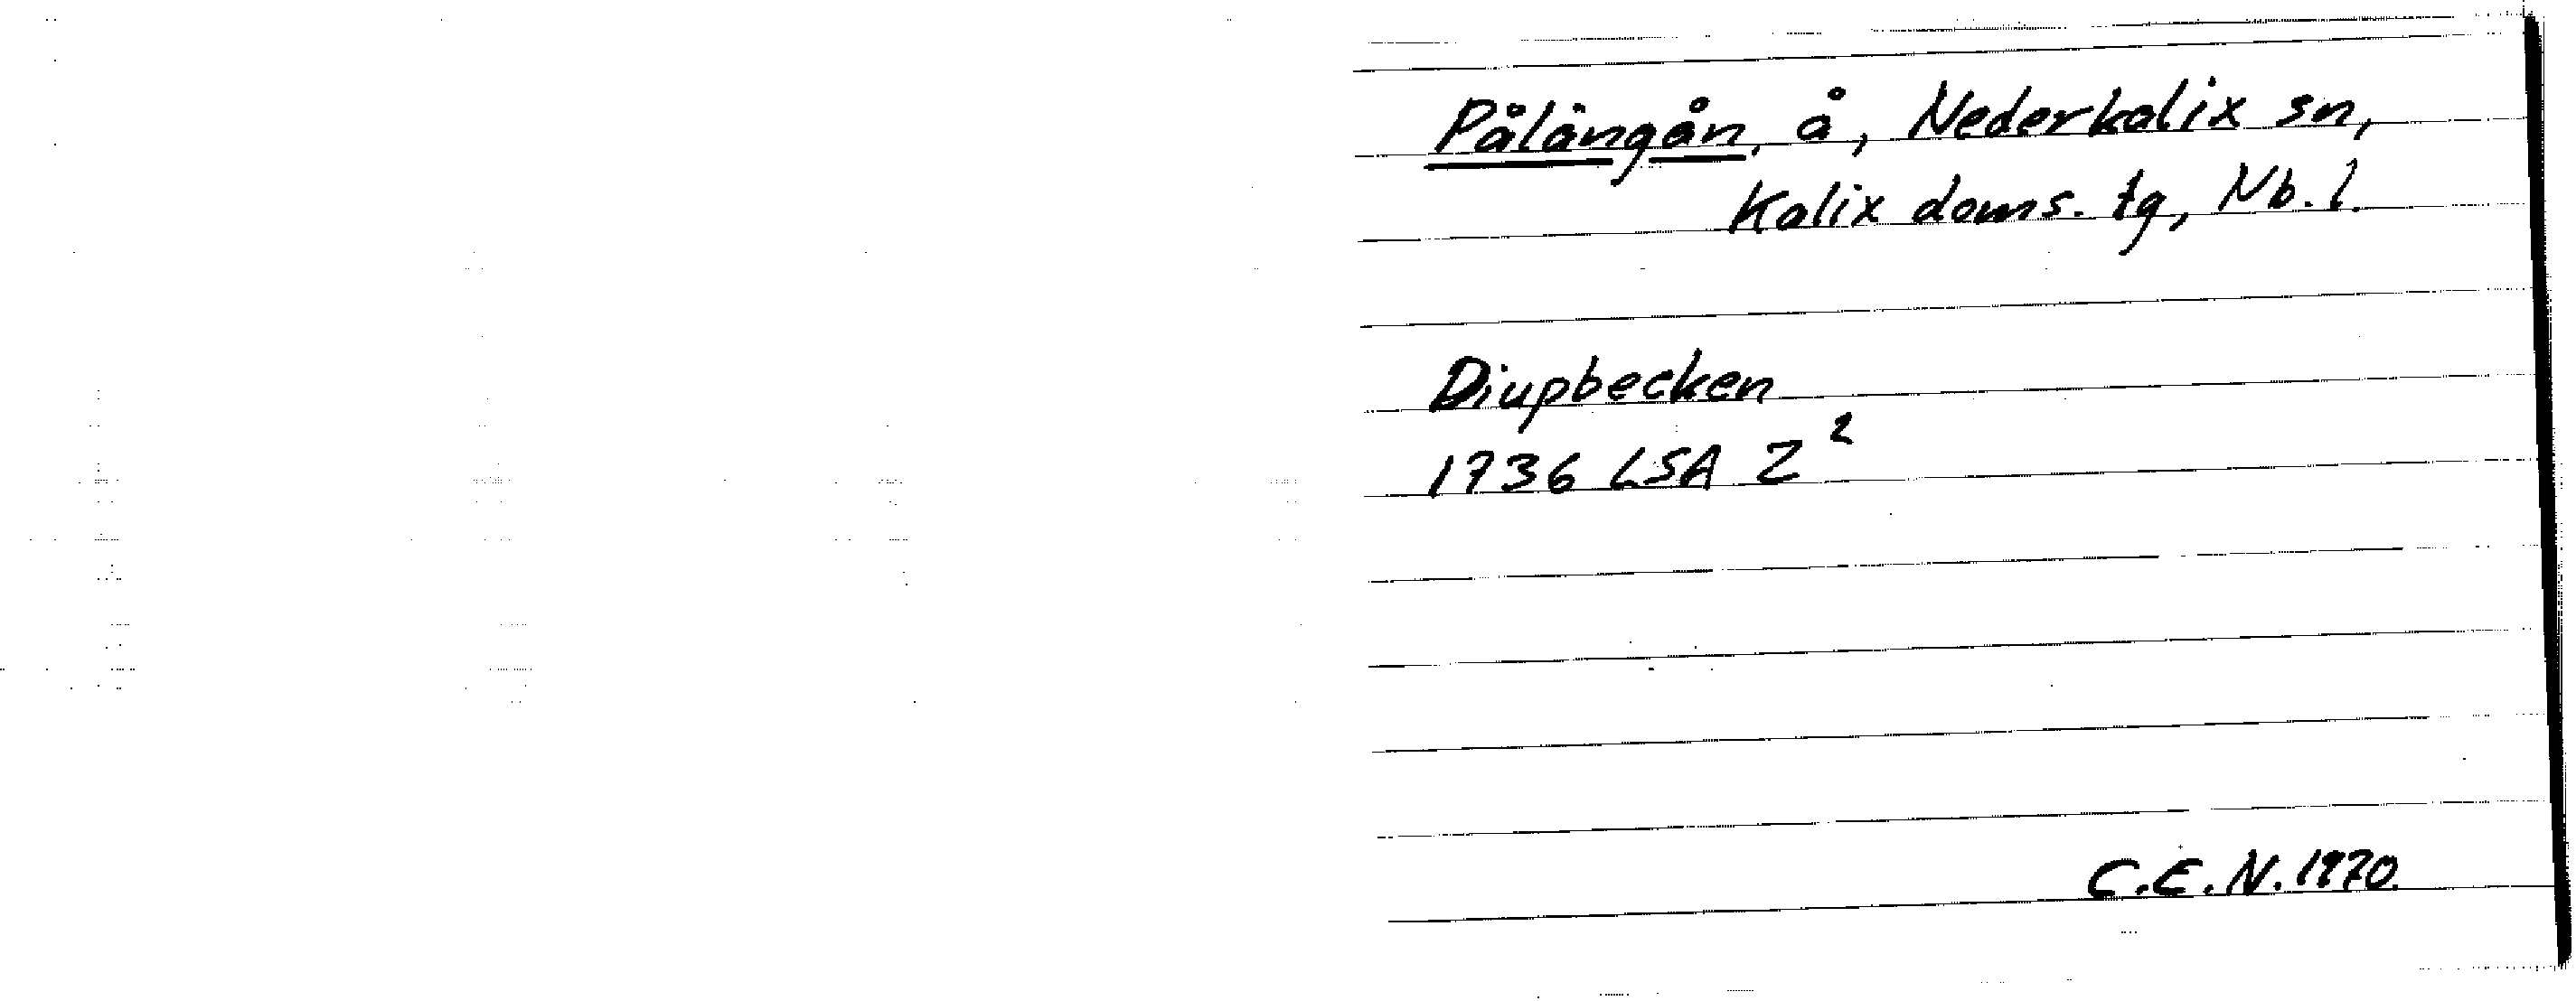 Pålängån, å, Nederkalix sn,
Kalix doms. tg, Nb. l.
Diupbecken
1736 LSA Z²
C.E.N. 1970.